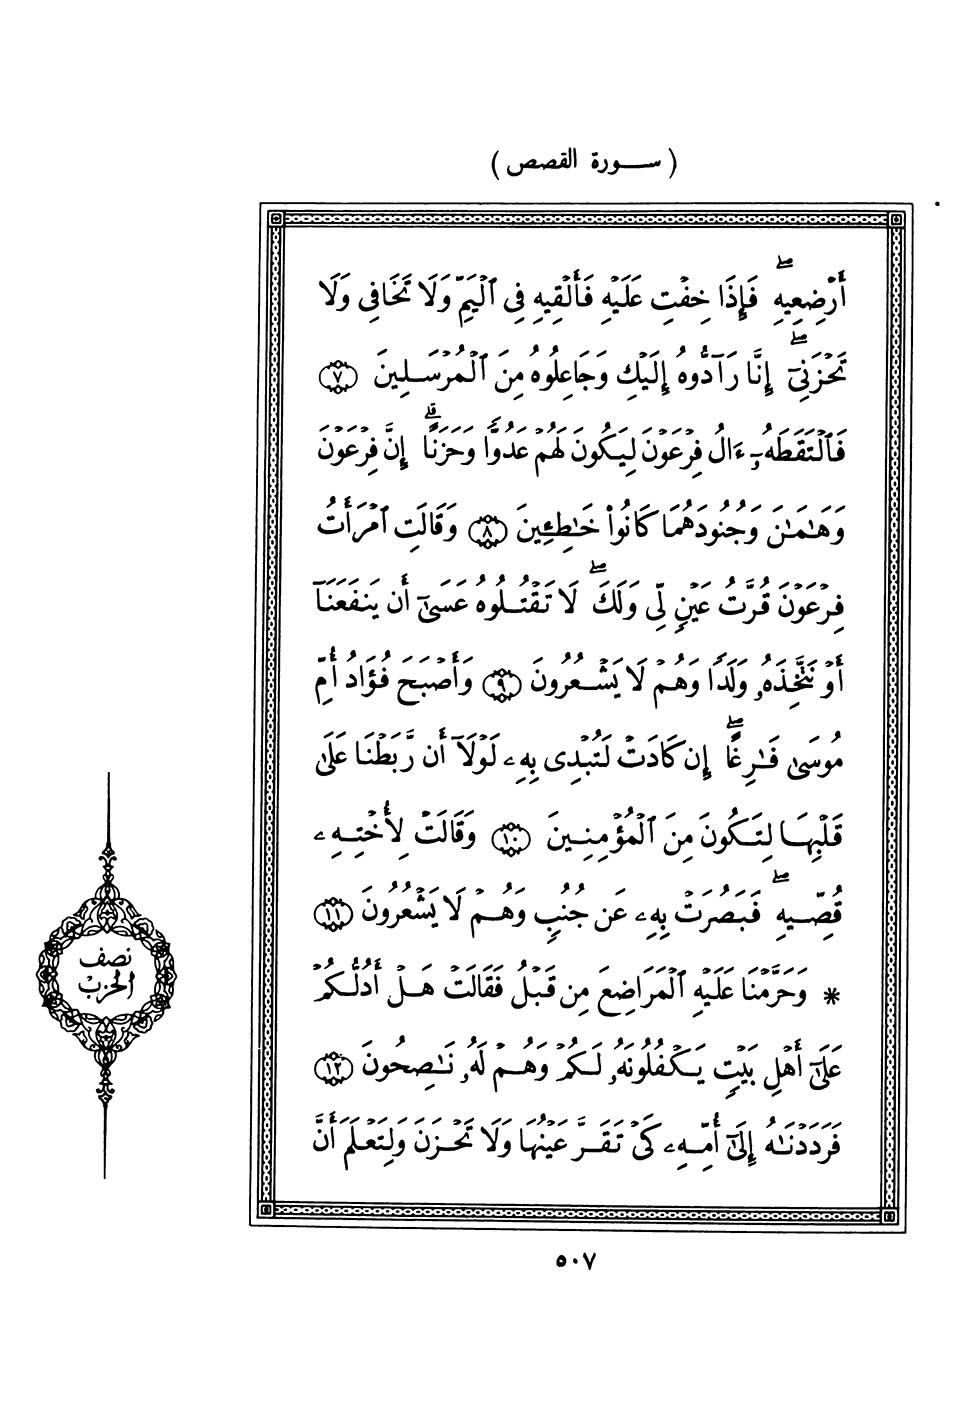 ( سورة القصص )
أَرْضِعِيهِ ۖ فَإِذَا خِفْتِ عَلَيْهِ فَأَلْقِيهِ فِى ٱلْيَمِّ وَلَا تَخَافِى وَلَا
تَحْزَنِىٓ ۖ إِنَّا رَآدُّوهُ إِلَيْكِ وَجَاعِلُوهُ مِنَ ٱلْمُرْسَلِينَ ٧
فَٱلْتَقَطَهُۥٓ ءَالُ فِرْعَوْنَ لِيَكُونَ لَهُمْ عَدُوًّا وَحَزَنًا ۗ إِنَّ فِرْعَوْنَ
وَهَـٰمَـٰنَ وَجُنُودَهُمَا كَانُوا۟ خَـٰطِـِٔينَ ٨ وَقَالَتِ ٱمْرَأَتُ
فِرْعَوْنَ قُرَّتُ عَيْنٍ لِّى وَلَكَ ۖ لَا تَقْتُلُوهُ عَسَىٰٓ أَن يَنفَعَنَآ
أَوْ نَتَّخِذَهُۥ وَلَدًا وَهُمْ لَا يَشْعُرُونَ ٩ وَأَصْبَحَ فُؤَادُ أُمِّ
مُوسَىٰ فَـٰرِغًا ۖ إِن كَادَتْ لَتُبْدِى بِهِۦ لَوْلَآ أَن رَّبَطْنَا عَلَىٰ
قَلْبِهَا لِتَكُونَ مِنَ ٱلْمُؤْمِنِينَ ١٠ وَقَالَتْ لِأُخْتِهِۦ
قُصِّيهِ ۖ فَبَصُرَتْ بِهِۦ عَن جُنُبٍ وَهُمْ لَا يَشْعُرُونَ ١١
* وَحَرَّمْنَا عَلَيْهِ ٱلْمَرَاضِعَ مِن قَبْلُ فَقَالَتْ هَلْ أَدُلُّكُمْ
عَلَىٰٓ أَهْلِ بَيْتٍ يَكْفُلُونَهُۥ لَكُمْ وَهُمْ لَهُۥ نَـٰصِحُونَ ١٢
فَرَدَدْنَـٰهُ إِلَىٰٓ أُمِّهِۦ كَىْ تَقَرَّ عَيْنُهَا وَلَا تَحْزَنَ وَلِتَعْلَمَ أَنَّ
نصف
الحزب
٥٠٧